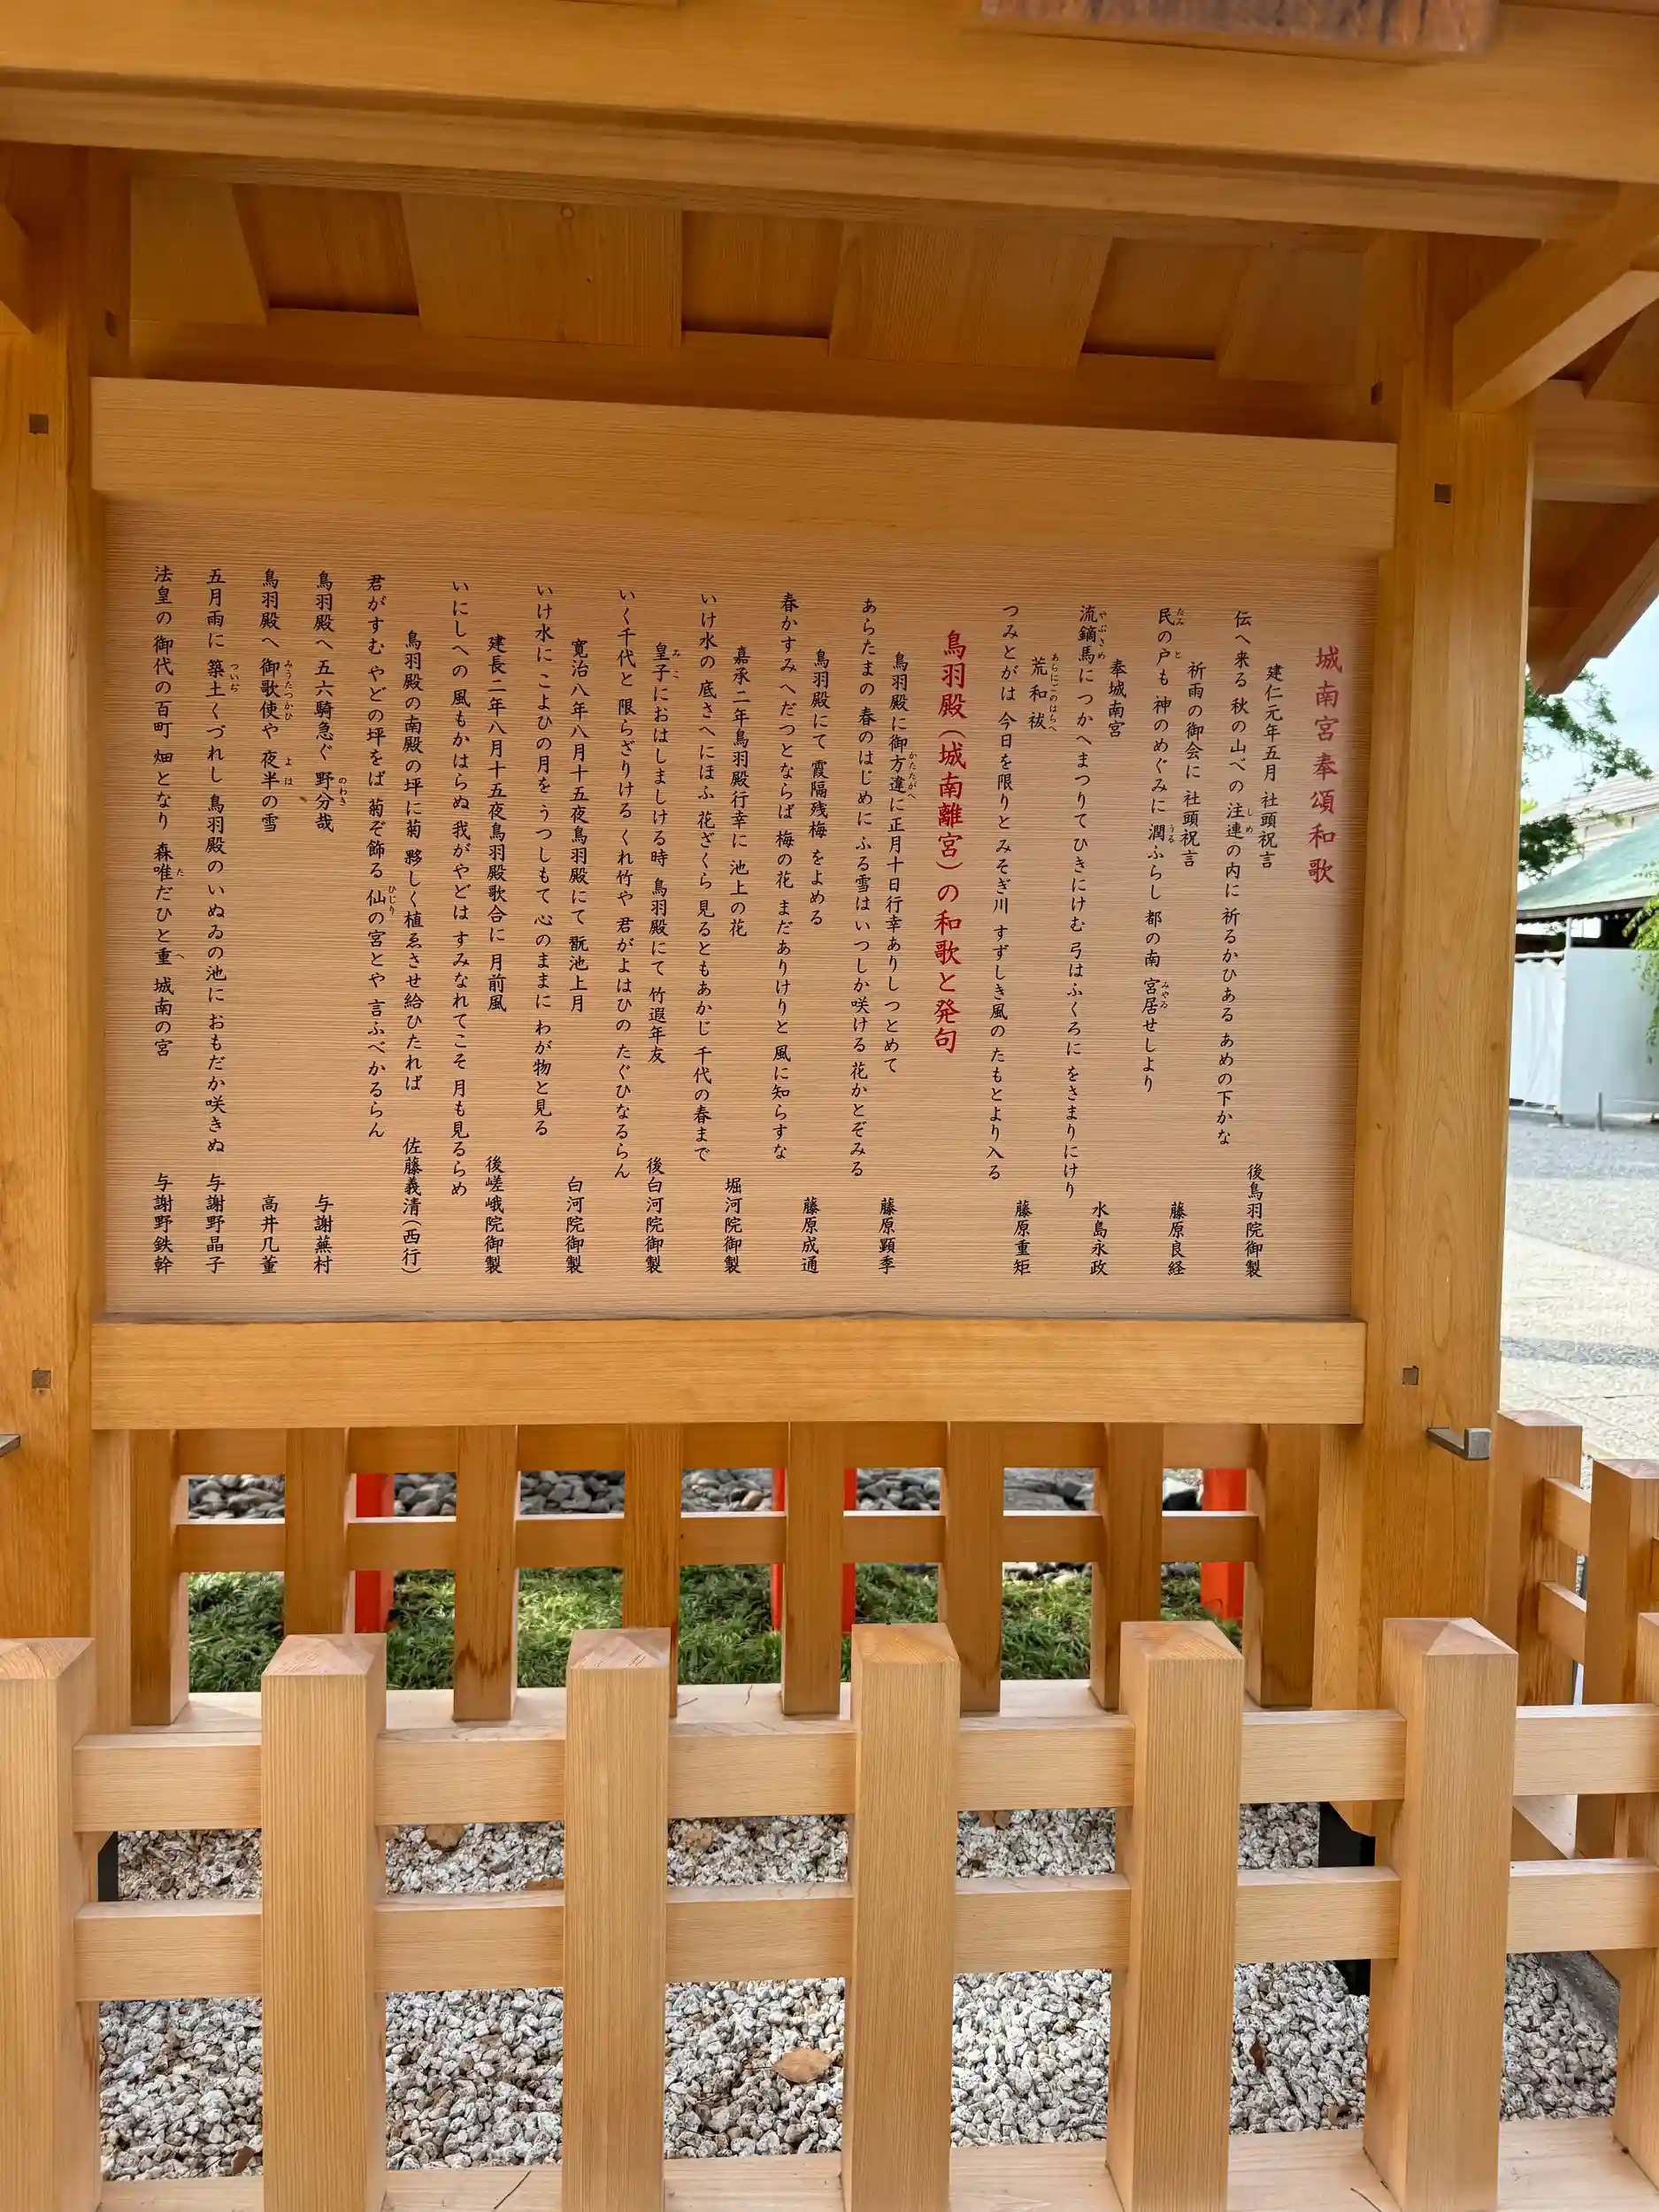 城南宮奉頌和歌
建仁元年五月 社頭祝言
伝へ来る 秋の山べの 注連の内に 祈るかひある あめの下かな 後鳥羽院御製
祈雨の御会に 社頭祝言
民の戸も 神のめぐみに 潤ふらし 都の南 宮居せしより 藤原良経
奉城南宮
流鏑馬に つかへまつりて ひきにけむ 弓はふくろに をさまりにけり 水島永政
荒和祓
つみとがは 今日を限りと みそぎ川 すずしき風の たもとより入る 藤原重矩
鳥羽殿(城南離宮)の和歌と発句
鳥羽殿に御方違に正月十日行幸ありし つとめて
あらたまの 春のはじめに ふる雪は いつしか咲ける 花かとぞみる 藤原顕季
鳥羽殿にて 霞隔残梅 をよめる
春かすみ へだつとならば 梅の花 まだありけりと 風に知らすな 藤原成通
嘉承二年鳥羽殿行幸に 池上の花
いけ水の 底さへにほふ 花ざくら 見るともあかじ 千代の春まで 堀河院御製
皇子におはしましける時 鳥羽殿にて 竹遐年友
いく千代と 限らざりける くれ竹や 君がよはひの たぐひなるらん 後白河院御製
寛治八年八月十五夜鳥羽殿にて 翫池上月
いけ水に こよひの月を うつしもて 心のままに わが物と見る 白河院御製
建長二年八月十五夜鳥羽殿歌合に 月前風
いにしへの 風もかはらぬ 我がやどは すみなれてこそ 月も見るらめ 後嵯峨院御製
鳥羽殿の南殿の坪に菊 夥しく植ゑさせ給ひたれば 佐藤義清(西行)
君がすむ やどの坪をば 菊ぞ飾る 仙の宮とや 言ふべかるらん
鳥羽殿へ 五六騎急ぐ 野分哉 与謝蕪村
鳥羽殿へ 御歌使や 夜半の雪 高井几董
五月雨に 築土くづれし 鳥羽殿の いぬゐの池に おもだか咲きぬ 与謝野晶子
法皇の 御代の百町 畑となり 森唯だひと重 城南の宮 与謝野鉄幹